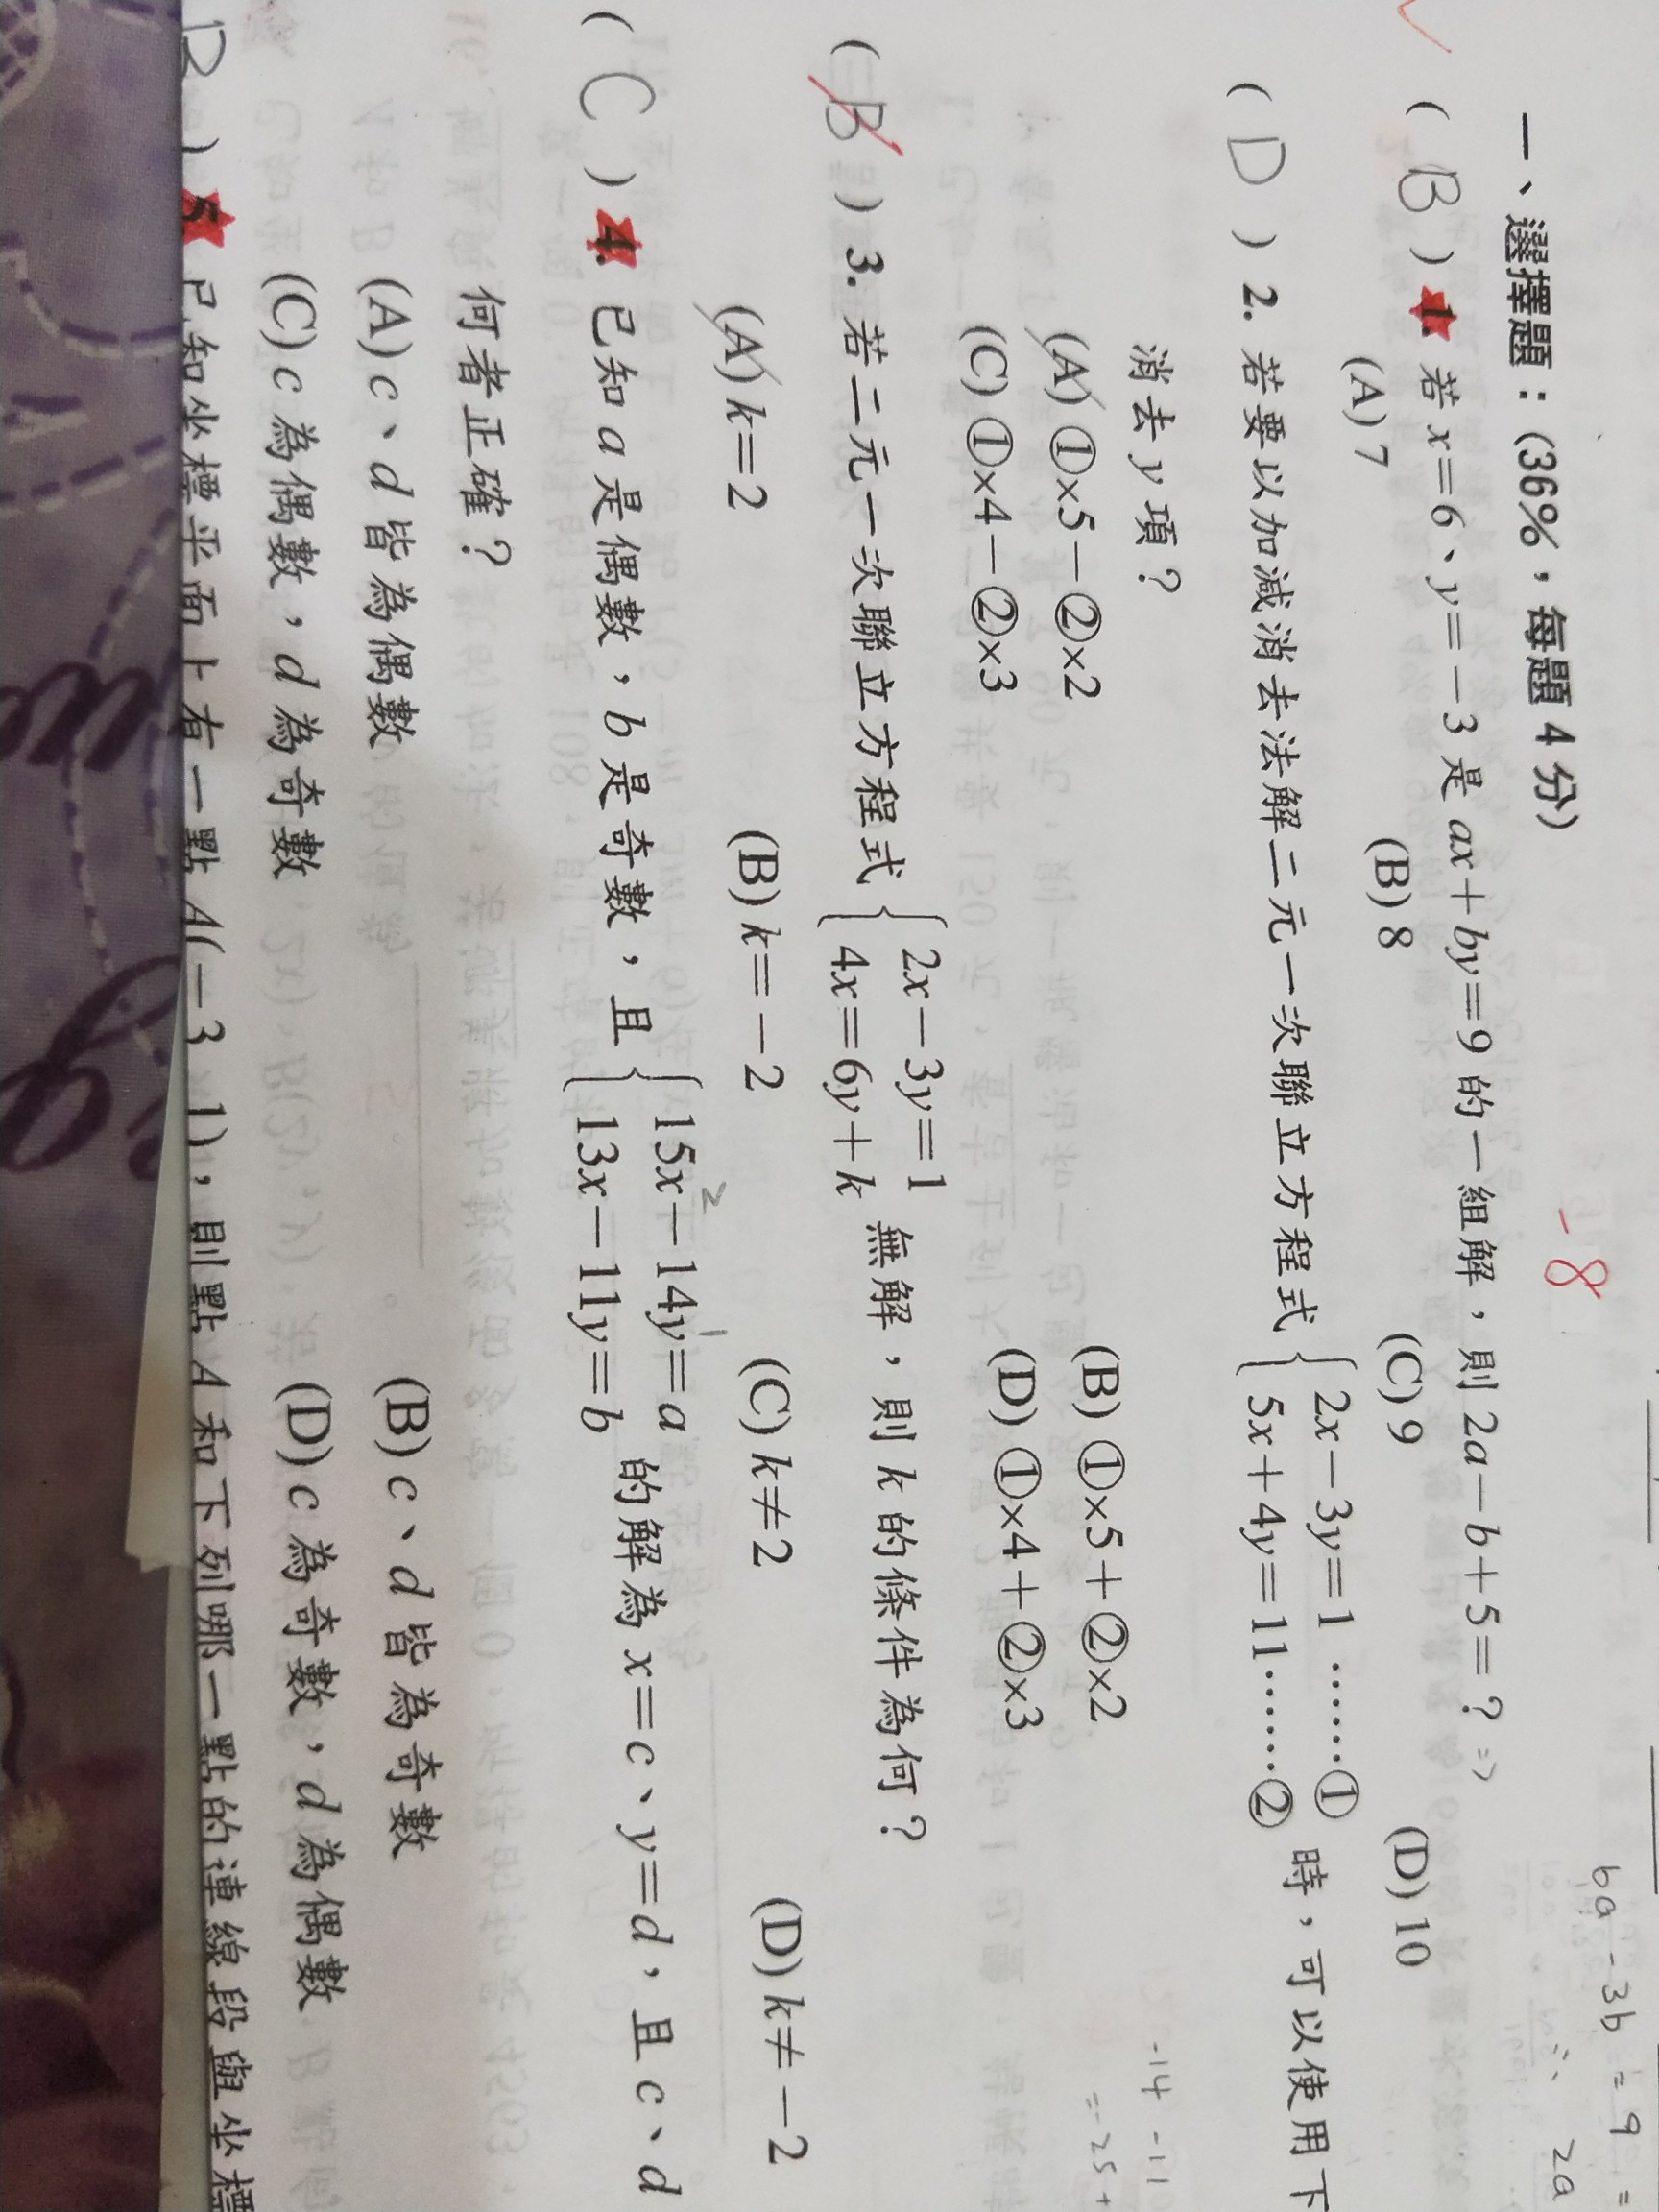 一、選擇題：(36%，每題 4 分)
-8
6a - 3b = 9 =
∴ 2a
( B ) 1. 若 x=6、y=-3 是 ax+by=9 的一組解，則 2a-b+5=？
(A) 7 (B) 8 (C) 9 (D) 10
( D ) 2. 若要以加減消去法解二元一次聯立方程式 { 2x-3y=1 ……①
5x+4y=11……② 時，可以使用下
消去 y 項？
(A) ①×5-②×2 (B) ①×5+②×2
(C) ①×4-②×3 (D) ①×4+②×3
-14 -11
=-25+
( B ) 3. 若二元一次聯立方程式 { 2x-3y=1
4x=6y+k 無解，則 k 的條件為何？
(A) k=2 (B) k=-2 (C) k≠2 (D) k≠-2
( C ) 4. 已知 a 是偶數，b 是奇數，且 { 15x-14y=a
13x-11y=b 的解為 x=c、y=d，且 c、d
2 1
何者正確？
(A) c、d 皆為偶數 (B) c、d 皆為奇數
(C) c 為偶數，d 為奇數 (D) c 為奇數，d 為偶數
D ) 5. 已知坐標平面上有一點 A(-3 , 1)，則點 A 和下列哪一點的連線段與坐標